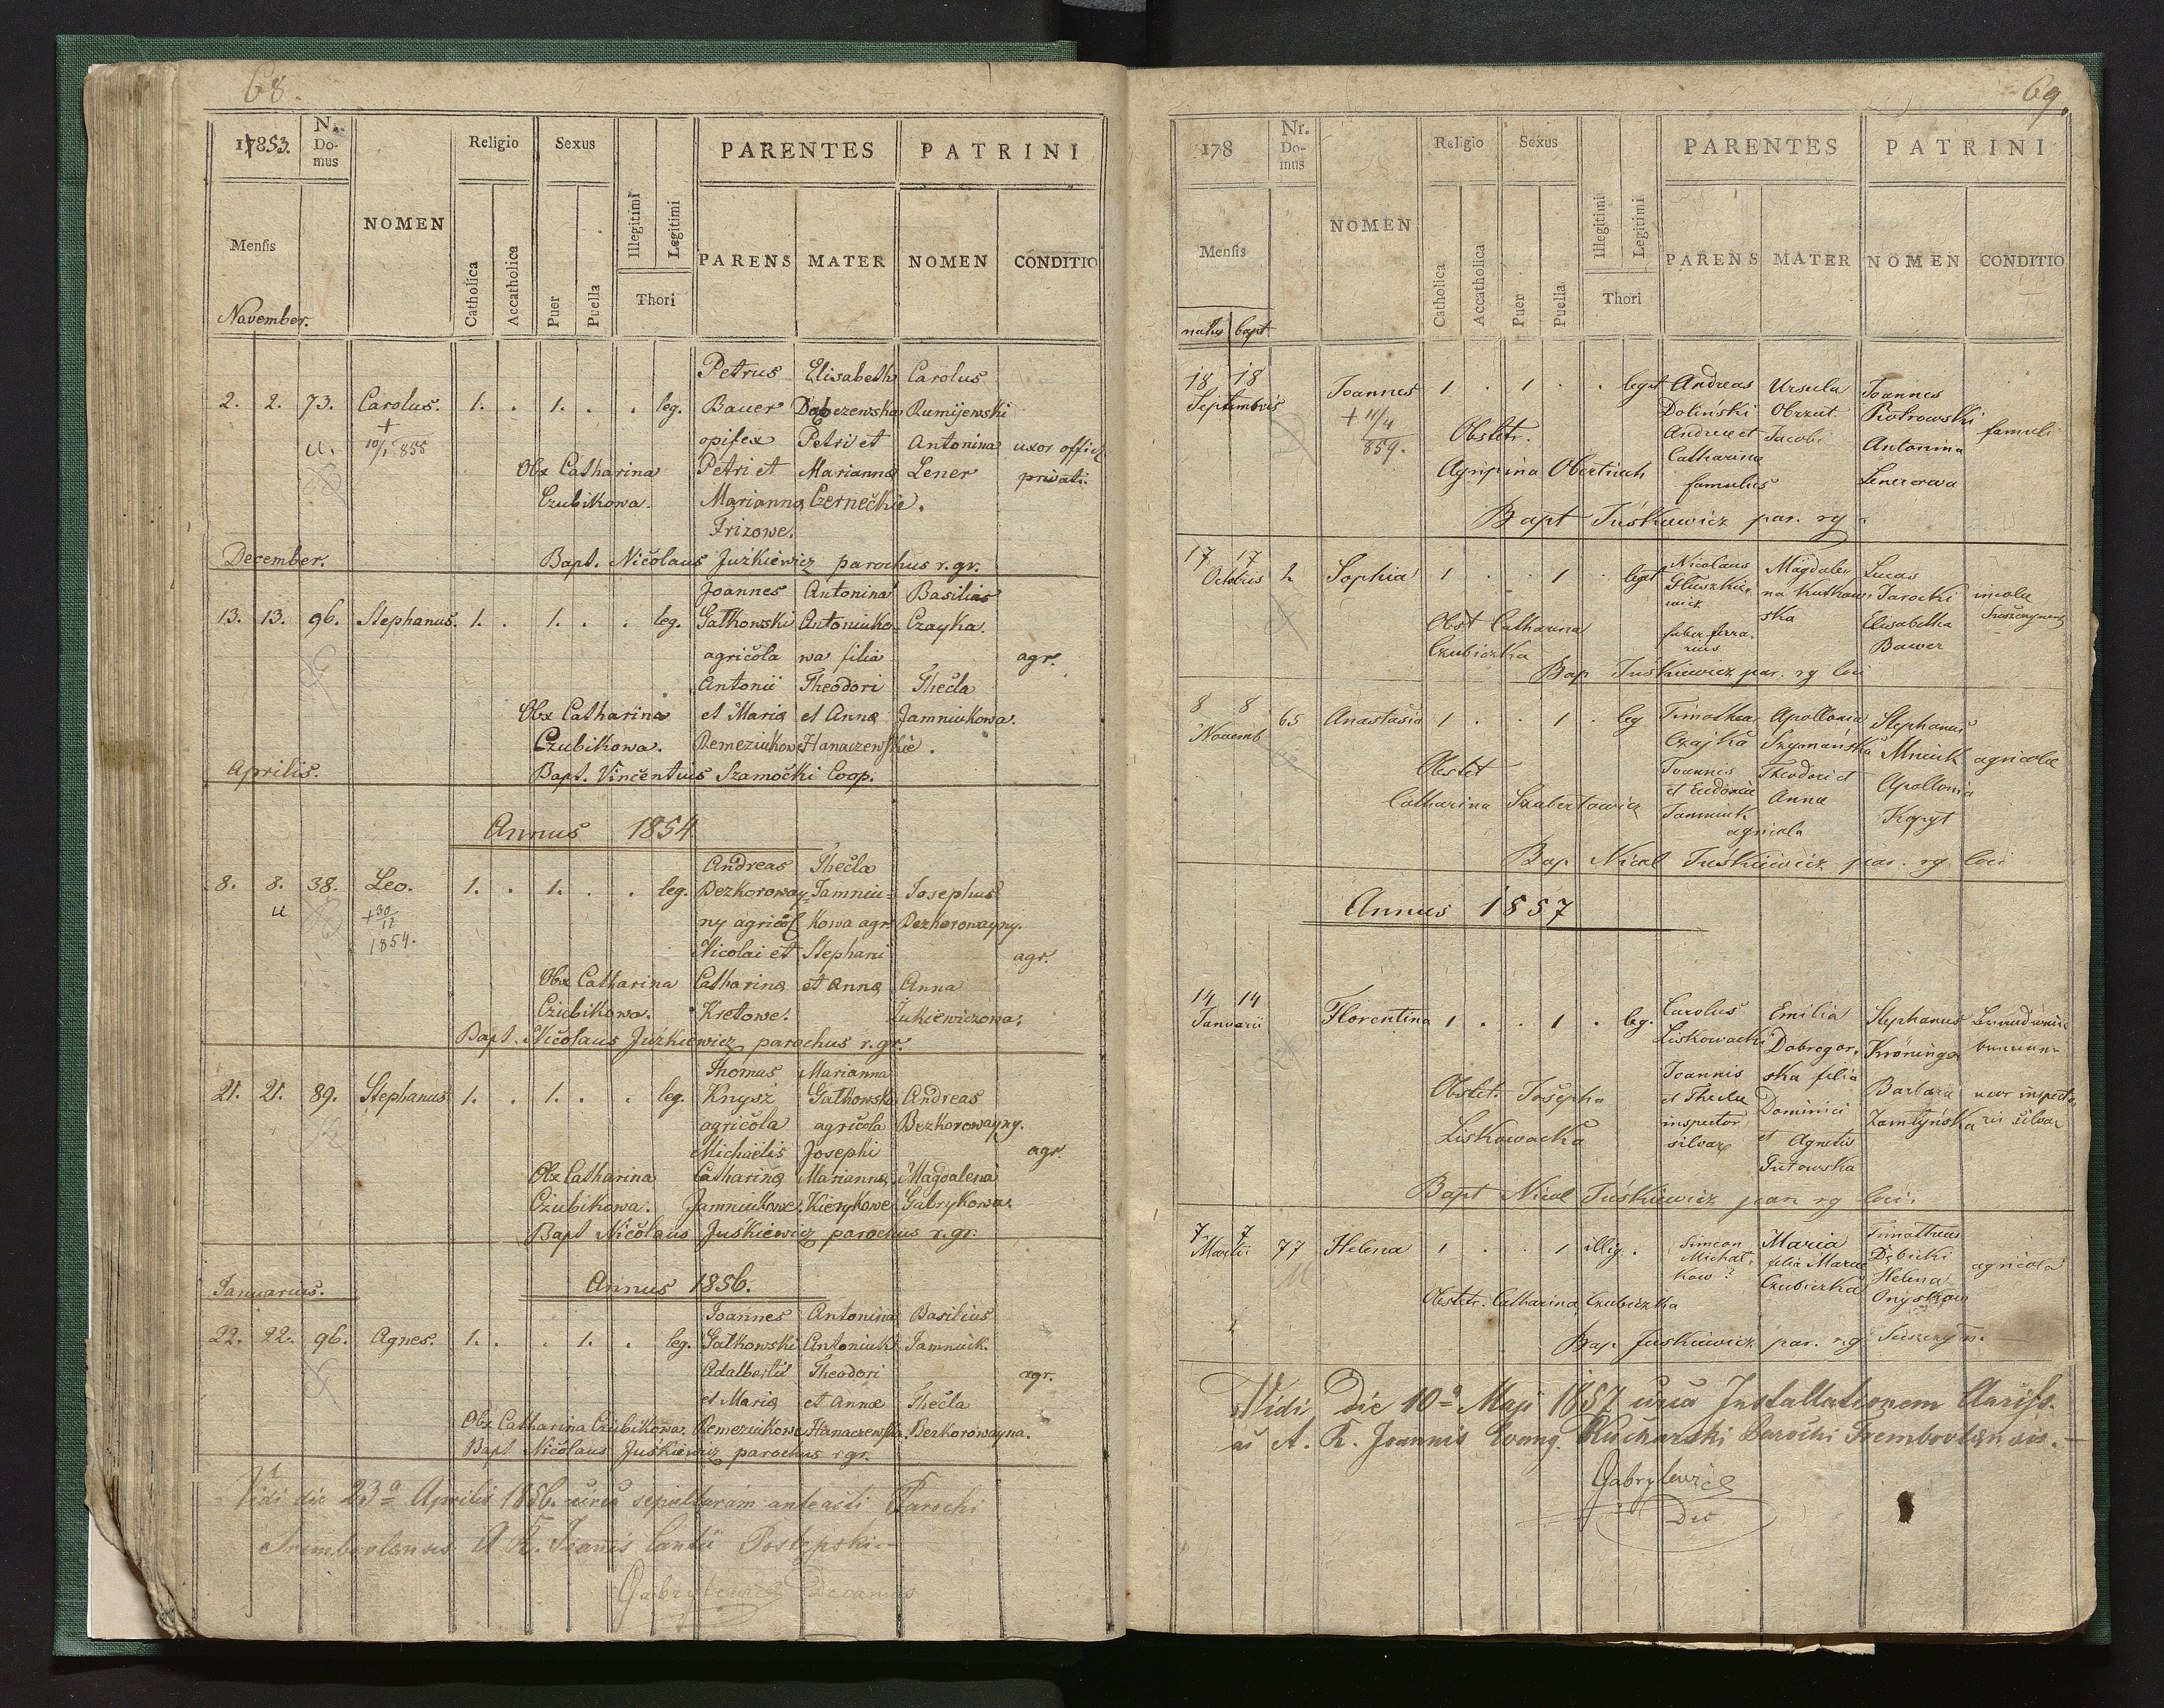 68.
17853.
N.
Do-
mus
NOMEN
Religio
Sexus
Illegitimi
Legitimi
PARENTES
PATRINI
Mensis
Catholica
Accatholica
Puer
Puella
Thori
PARENS
MATER
NOMEN
CONDITIO
November.
Petrus Elisabeth Carolus
2. 2. 73. Carolus. 1. . 1. . . leg. Bauer Rumijewski
+
opifex Petri et Antonina uxor offic.
u. 10/1 855
Obx Catharina Petri et Marianna Lener privati.
Czubikowa. Marianna Czerneckie.
Frizowe.
December. Bapt. Nicolaus Juźkiewicz parochus r. gr.
Joannes Antonina Basilius
13. 13. 96. Stephanus. 1. . 1. . . leg. Gałkowski Antoniuko- Czayka.
agricola wa filia agr.
Antonii Theodori Thecla
Obx Catharina et Maria et Anna Jamniukowa.
Czubikowa. Remeziukowe Hanaczewskie.
Aprilis. Bapt. Vincentius Szamocki Coop.
Annus 1854
Andreas Thecla
8. 8. 38. Leo. 1. . 1. . . leg. Bezkoroway- Jamniu- Josephus
u +30/12 ny agricol kowa agr. Bezkorowayny.
1854.
Nicolai et Stephani agr.
Obx Catharina Catharina et Anna Anna
Czubikowa. Kretowe. Żukiewiczowa.
Bapt. Nicolaus Juźkiewicz parochus r. gr.
Thomas Marianna
21. 21. 89. Stephanus 1. . 1. . . leg. Knysz Gałkowska Andreas
agricola agricola Bezkorowayny.
Michaelis Josephi agr.
Obx Catharina Catharina Marianna Magdalena
Czubikowa. Jamniukowe. Kierykowe. Gabrykowa.
Bapt Nicolaus Juskiewicz parochus r. gr.
Januarius. Annus 1856.
Joannes Antonina Basilius
22. 22. 96. Agnes. 1. . . 1. . leg. Gałkowski Antoniuk Jamniuk.
Adalberti Theodori agr.
et Maria et Annæ Thecla
Obx Catharina Czubikowa. Remeziukowe Hanaczewska. Bezkorowayna.
Bapt Nicolaus Juśkiewicz parochus r gr.
Vidi die 23a Aprilis 1856. circa sepulturam anteacti Parochi
Trembovlensis A R. Joanis Cantii Postępski.
Gabrylewicz Decanus
69.
178
Nr.
Do-
mus
NOMEN
Religio
Sexus
Illegitimi
Legitimi
PARENTES
PATRINI
Mensis
Catholica
Accatholica
Puer
Puella
Thori
PARENS
MATER
NOMEN
CONDITIO
natus bapt
18 18 Joannes 1 . 1 . . legit Andreas Ursula Joannes
Septembris Doliński Obrzut Piotrowski famuli
+ 11/4 Obstetr. Andreae et Jacobi Antonina
859.
Agripina Catharina Lenerowa
famulus
Bapt Juśkiewicz par. rg
17 17 2 Sophia 1 . . 1 . legit Nicolaus Magdale- Lucas
Octobris Głuszkie- na Kutkow- Jarocki incolae
wicz ska
Obst Catharina faber ferra- Elisabetha
Czubiczka rius Bawer
Bap Juśkiewicz par. rg loci
8 8 65 Anastasia 1 . . 1 . leg Timotheus Apollonia Stephanus
Novemb Czajka Szymańska Mniuk agricolae
Obstet Joannis Theodori et Apollonia
Catharina Szabertowicz et Eudoxiae Anna
Jamniuk Kopyt
agricola
Bap Nicol Juśkiewicz par. rg loci
Annus 1857
14 14 Florentina 1 . . 1 . leg. Carolus Emilia Stephanus
Januarii Liskowacki Dobrogor- Króninger
Joannis ska filia
Obstet. Josepha et Theclae Dominici Barbara uxor inspecto-
Liskowacka inspector et Agnetis Zamłyńska ris silvar
silvar Gutowska
Bapt Nicol Juśkiewicz par rg loci.
7 7 77 Helena 1 . . 1 illig. . Simeon Maria Timotheus
Martii Michal- filia Mariae Dębicki agricola
kow ? Czubiczka Helena
Obstetr. Catharina Czubiczka Onyskow
Bap. Juskiewicz par. r.g
Vidi Die 10a Maji 1857 circa Installationem Clariss.
ac A. R. Joannis Evang. Kucharski Parochi Trembovlensis.
Gabrylewicz
Dec